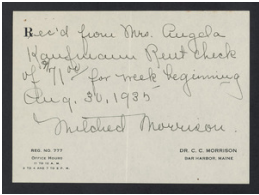 Rec'd from Mrs. Angela
Kaufmann Rent check
of $71 00 for week beginning
Aug. 30, 1935
Mildred Morrison.
REG. NO. 777
OFFICE HOURS
DR. C. C. MORRISON
BAR HARBOR, MAINE